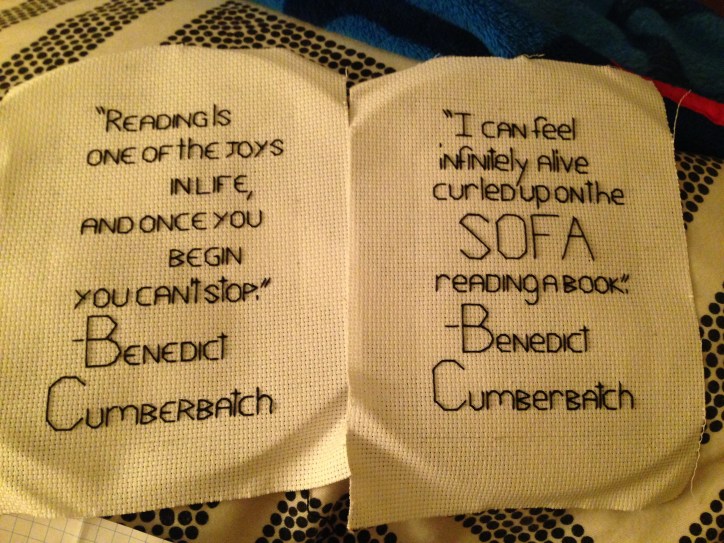 "READING Is
ONE OF the JOYS
IN LIFE,
AND ONCE YOU
BEGIN
YOU CAN'T STOP."
-BENEDICT
CUMBERBATCH
"I CAN feel
infinitely Alive
curled up on the
SOFA
reADING A BOOK".
-Benedict
CumberBAtch